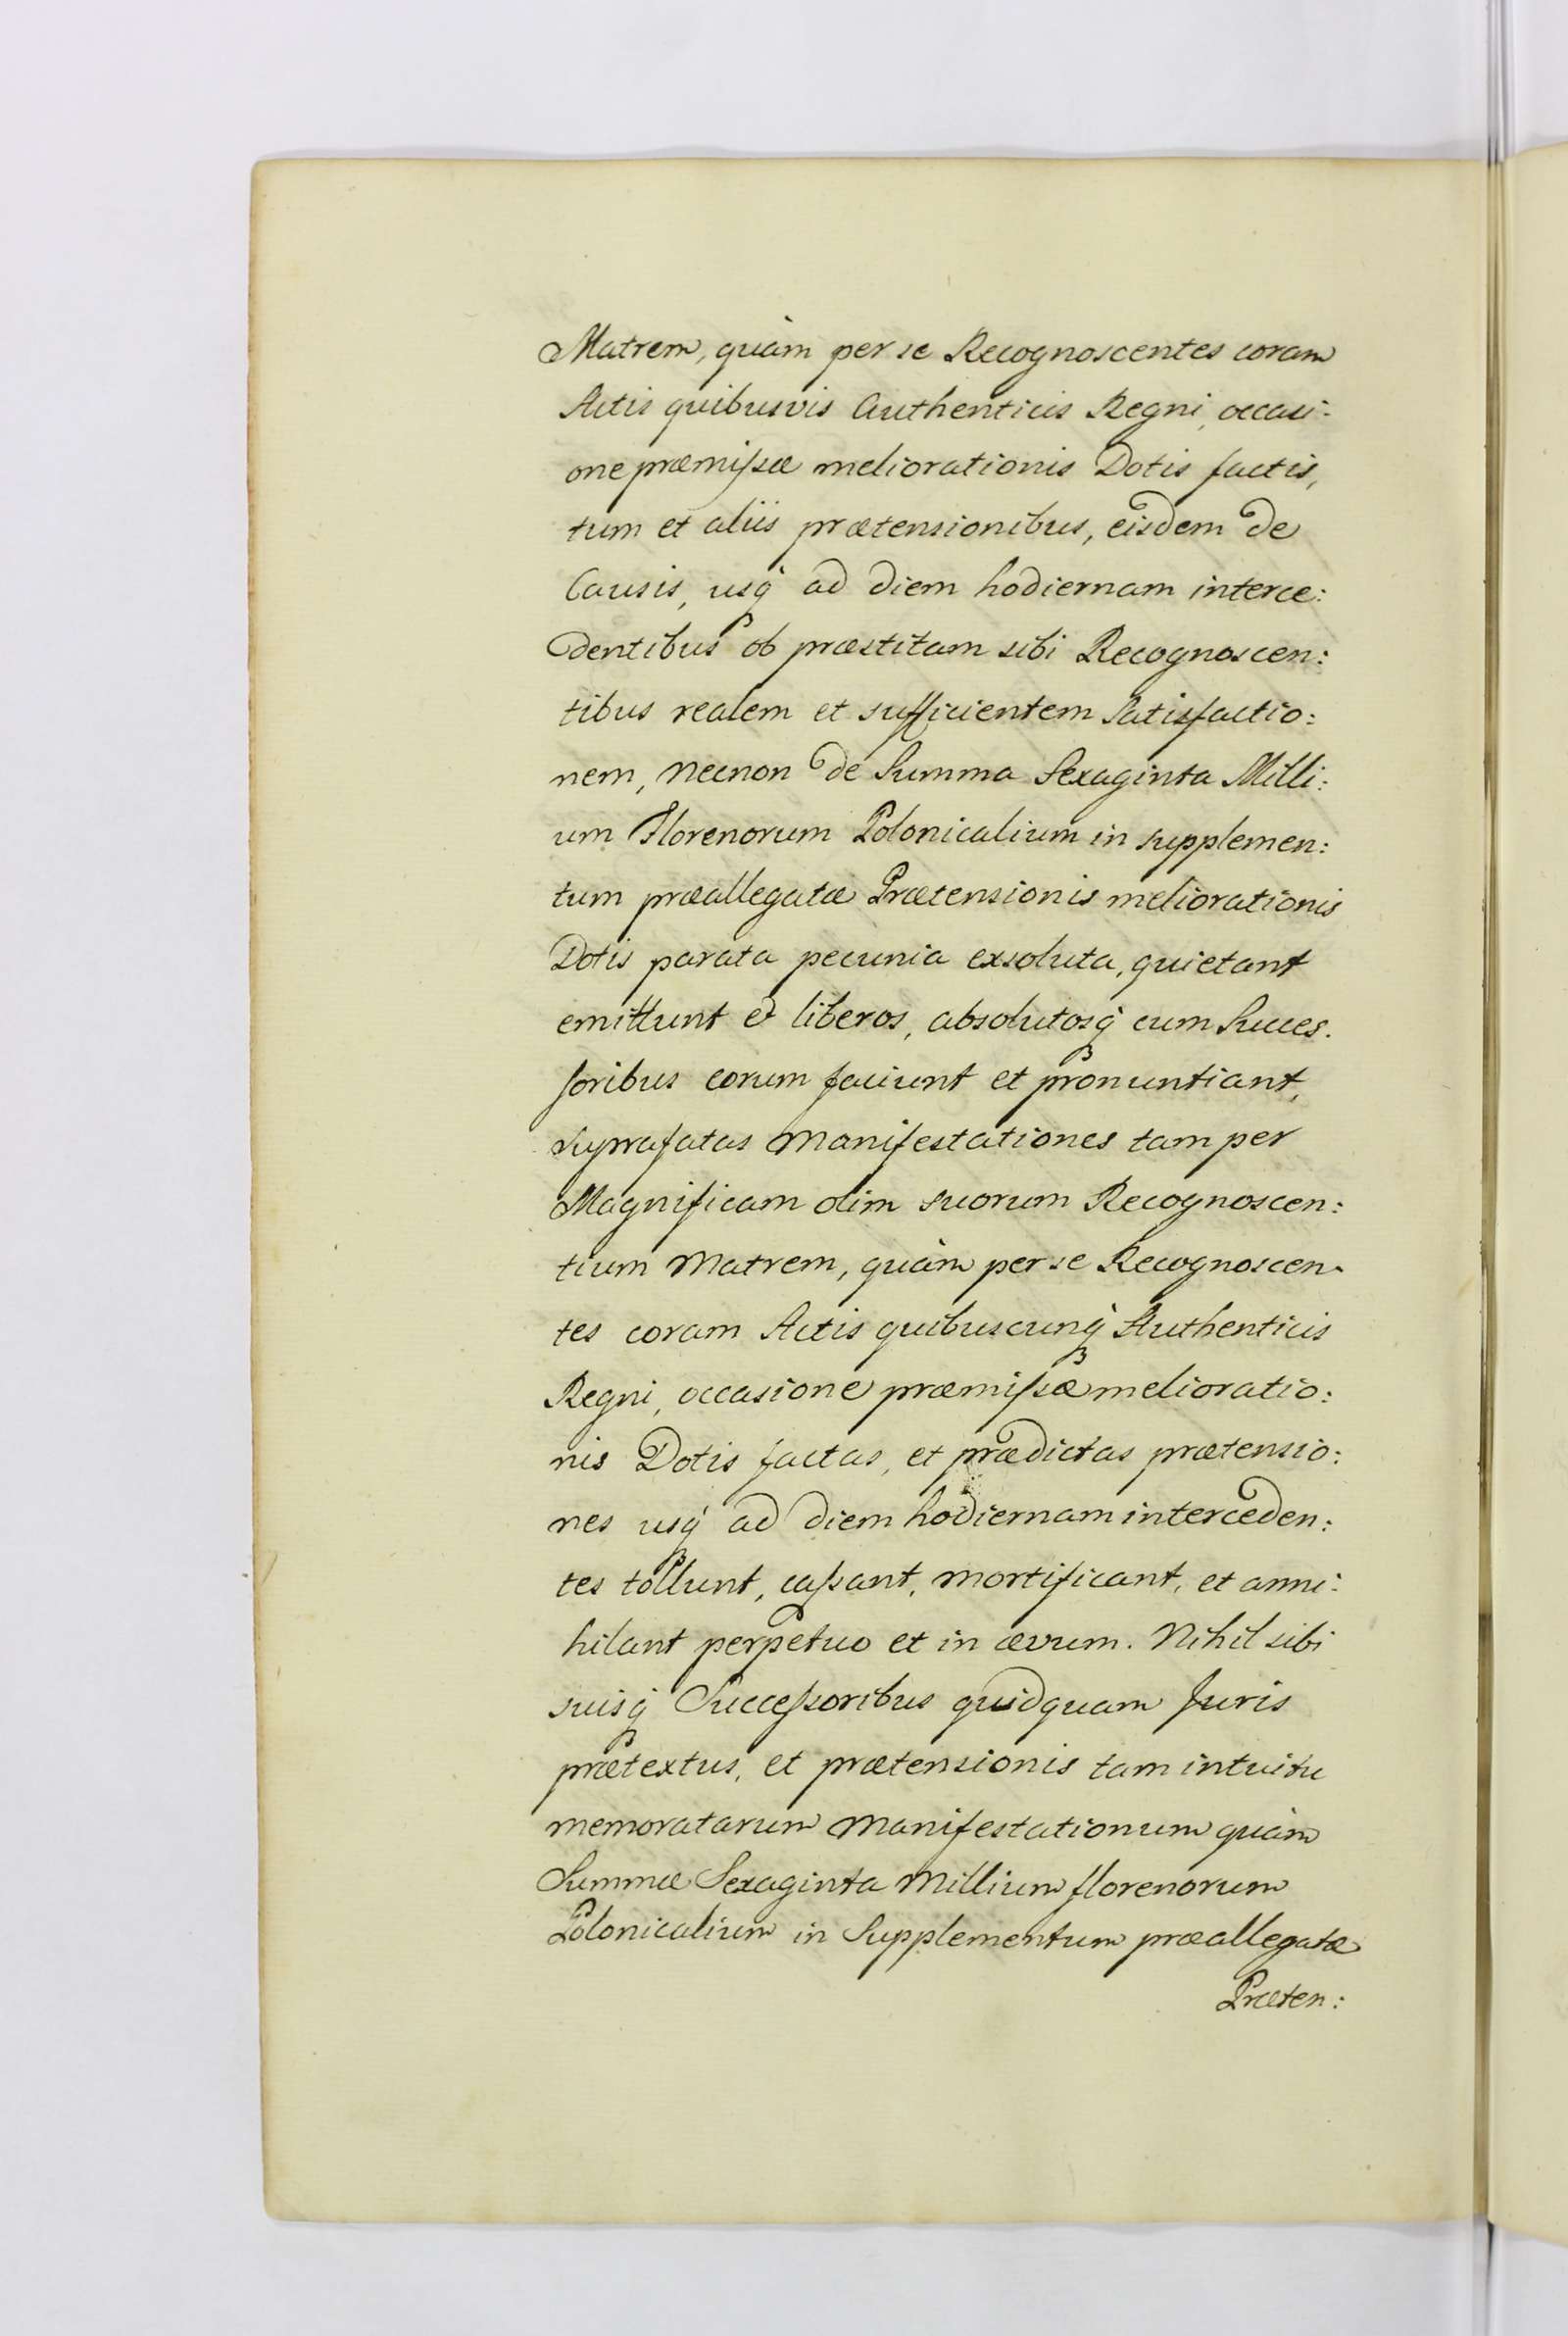 Matrem, quàm per se Recognoscentes coram
Actis quibusvis Authenticis Regni, occasi-
one præmissæ meliorationis Dotis factis,
tum et aliis prætensionibus, eisdem de
Causis, usq̀ ad diem hodiernam interce:
dentibus ob præstitam sibi Recognoscen:
tibus realem et sufficientem Satisfactio:
nem, necnon de Summa Sexaginta Milli:
um Florenorum Polonicalium in supplemen:
tum præallegatæ Prætensionis meliorationis
Dotis parata pecunia exsoluta, quietant
emittunt et liberos, absolutosq̀ cum Succes.
soribus eorum faciunt et pronuntiant,
suprafatas Manifestationes tam per
Magnificam olim suorum Recognoscen:
tium Matrem, quàm per se Recognoscen-
tes coram Actis quibuscunq̀ Authenticis
Regni, occasione præmissæ melioratio:
nis Dotis factas, et prædictas prætensio:
nes usq̀ ad diem hodiernam interceden:
tes tollunt, cassant, mortificant, et anni:
hilant perpetuo et in ævum. Nihil sibi
suisq̀ Successoribus quidquam Juris
prætextus, et prætensionis tam intuitu
memoratarum Manifestationum quàm
Summæ Sexaginta Millium florenorum
Polonicalium in Supplementum præallegatæ
Præten: